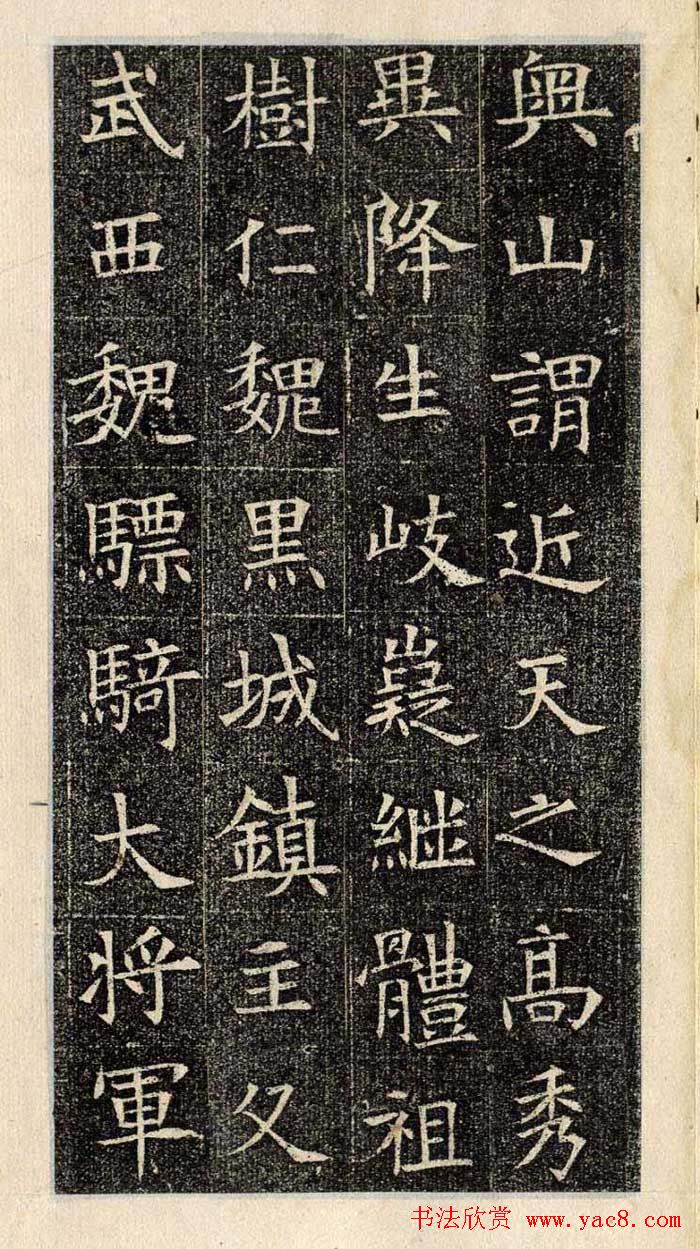 奥山謂近天之高秀
異降生岐嶷継體祖
樹仁魏黒城鎮主父
武西魏驃騎大将軍
书法欣赏 www.yac8.com